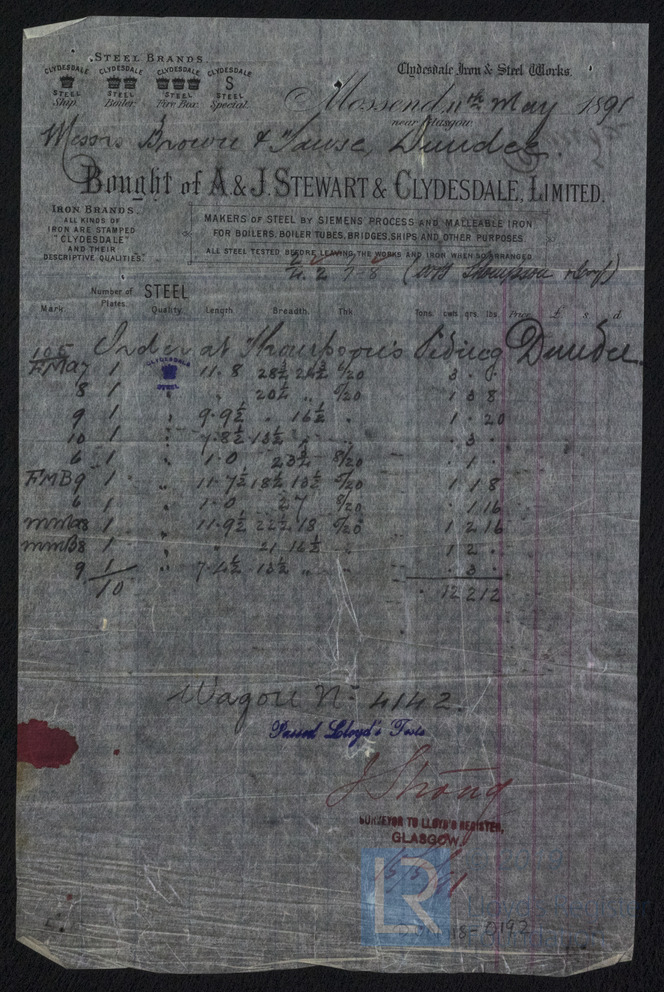 STEEL BRANDS.
CLYDESDALE CLYDESDALE CLYDESDALE CLYDESDALE
S
STEEL STEEL STEEL STEEL
Ship. Boiler. Fire Box. Special.
Clydesdale Iron & Steel Works.
Mossend, 11th May 1891
near Glasgow.
Messrs Brown & Dundee.
Bought of A & J. STEWART & CLYDESDALE, LIMITED.
IRON BRANDS.
ALL KINDS OF
IRON ARE STAMPED
"CLYDESDALE"
AND THEIR
DESCRIPTIVE QUALITIES.
MAKERS OF STEEL BY SIEMENS' PROCESS AND MALLEABLE IRON
FOR BOILERS, BOILER TUBES, BRIDGES, SHIPS AND OTHER PURPOSES
ALL STEEL TESTED BEFORE LEAVING THE WORKS AND IRON WHEN SO ARRANGED
Thompson
Mark. Number of Plates. STEEL Quality. Length. Breadth. Thk Tons. cwts. qrs. lbs. Price. £ s d
105 Order at Thompson's Siding Dundee
FMA7 1 CLYDESDALE STEEL 11.8 28½ 8/20 3
8 1 " " 20½ 1 3 8
9 1 " 9.9½ " 16½ " 1 . 20
10 1 " 7.8½ 13½ " . 3 .
6 1 " 1.0 8/20 . 1 .
FMB9 1 " 11.7½ 18½ 13½ 1 1 8
6 1 " 1.0 27 8/20 . 1 16
mmA8 1 " 11.9½ 22½ 18 1 2 16
mmB8 1 " " 21 16½ 1 2 .
9 1 " 7.4½ 13½ " . 3 .
10 . 12 2 12
Wagon No 4142.
Passed Lloyd's Tests
J Strong
SURVEYOR TO LLOYD'S REGISTER,
GLASGOW.
15/5/91
LR
0192